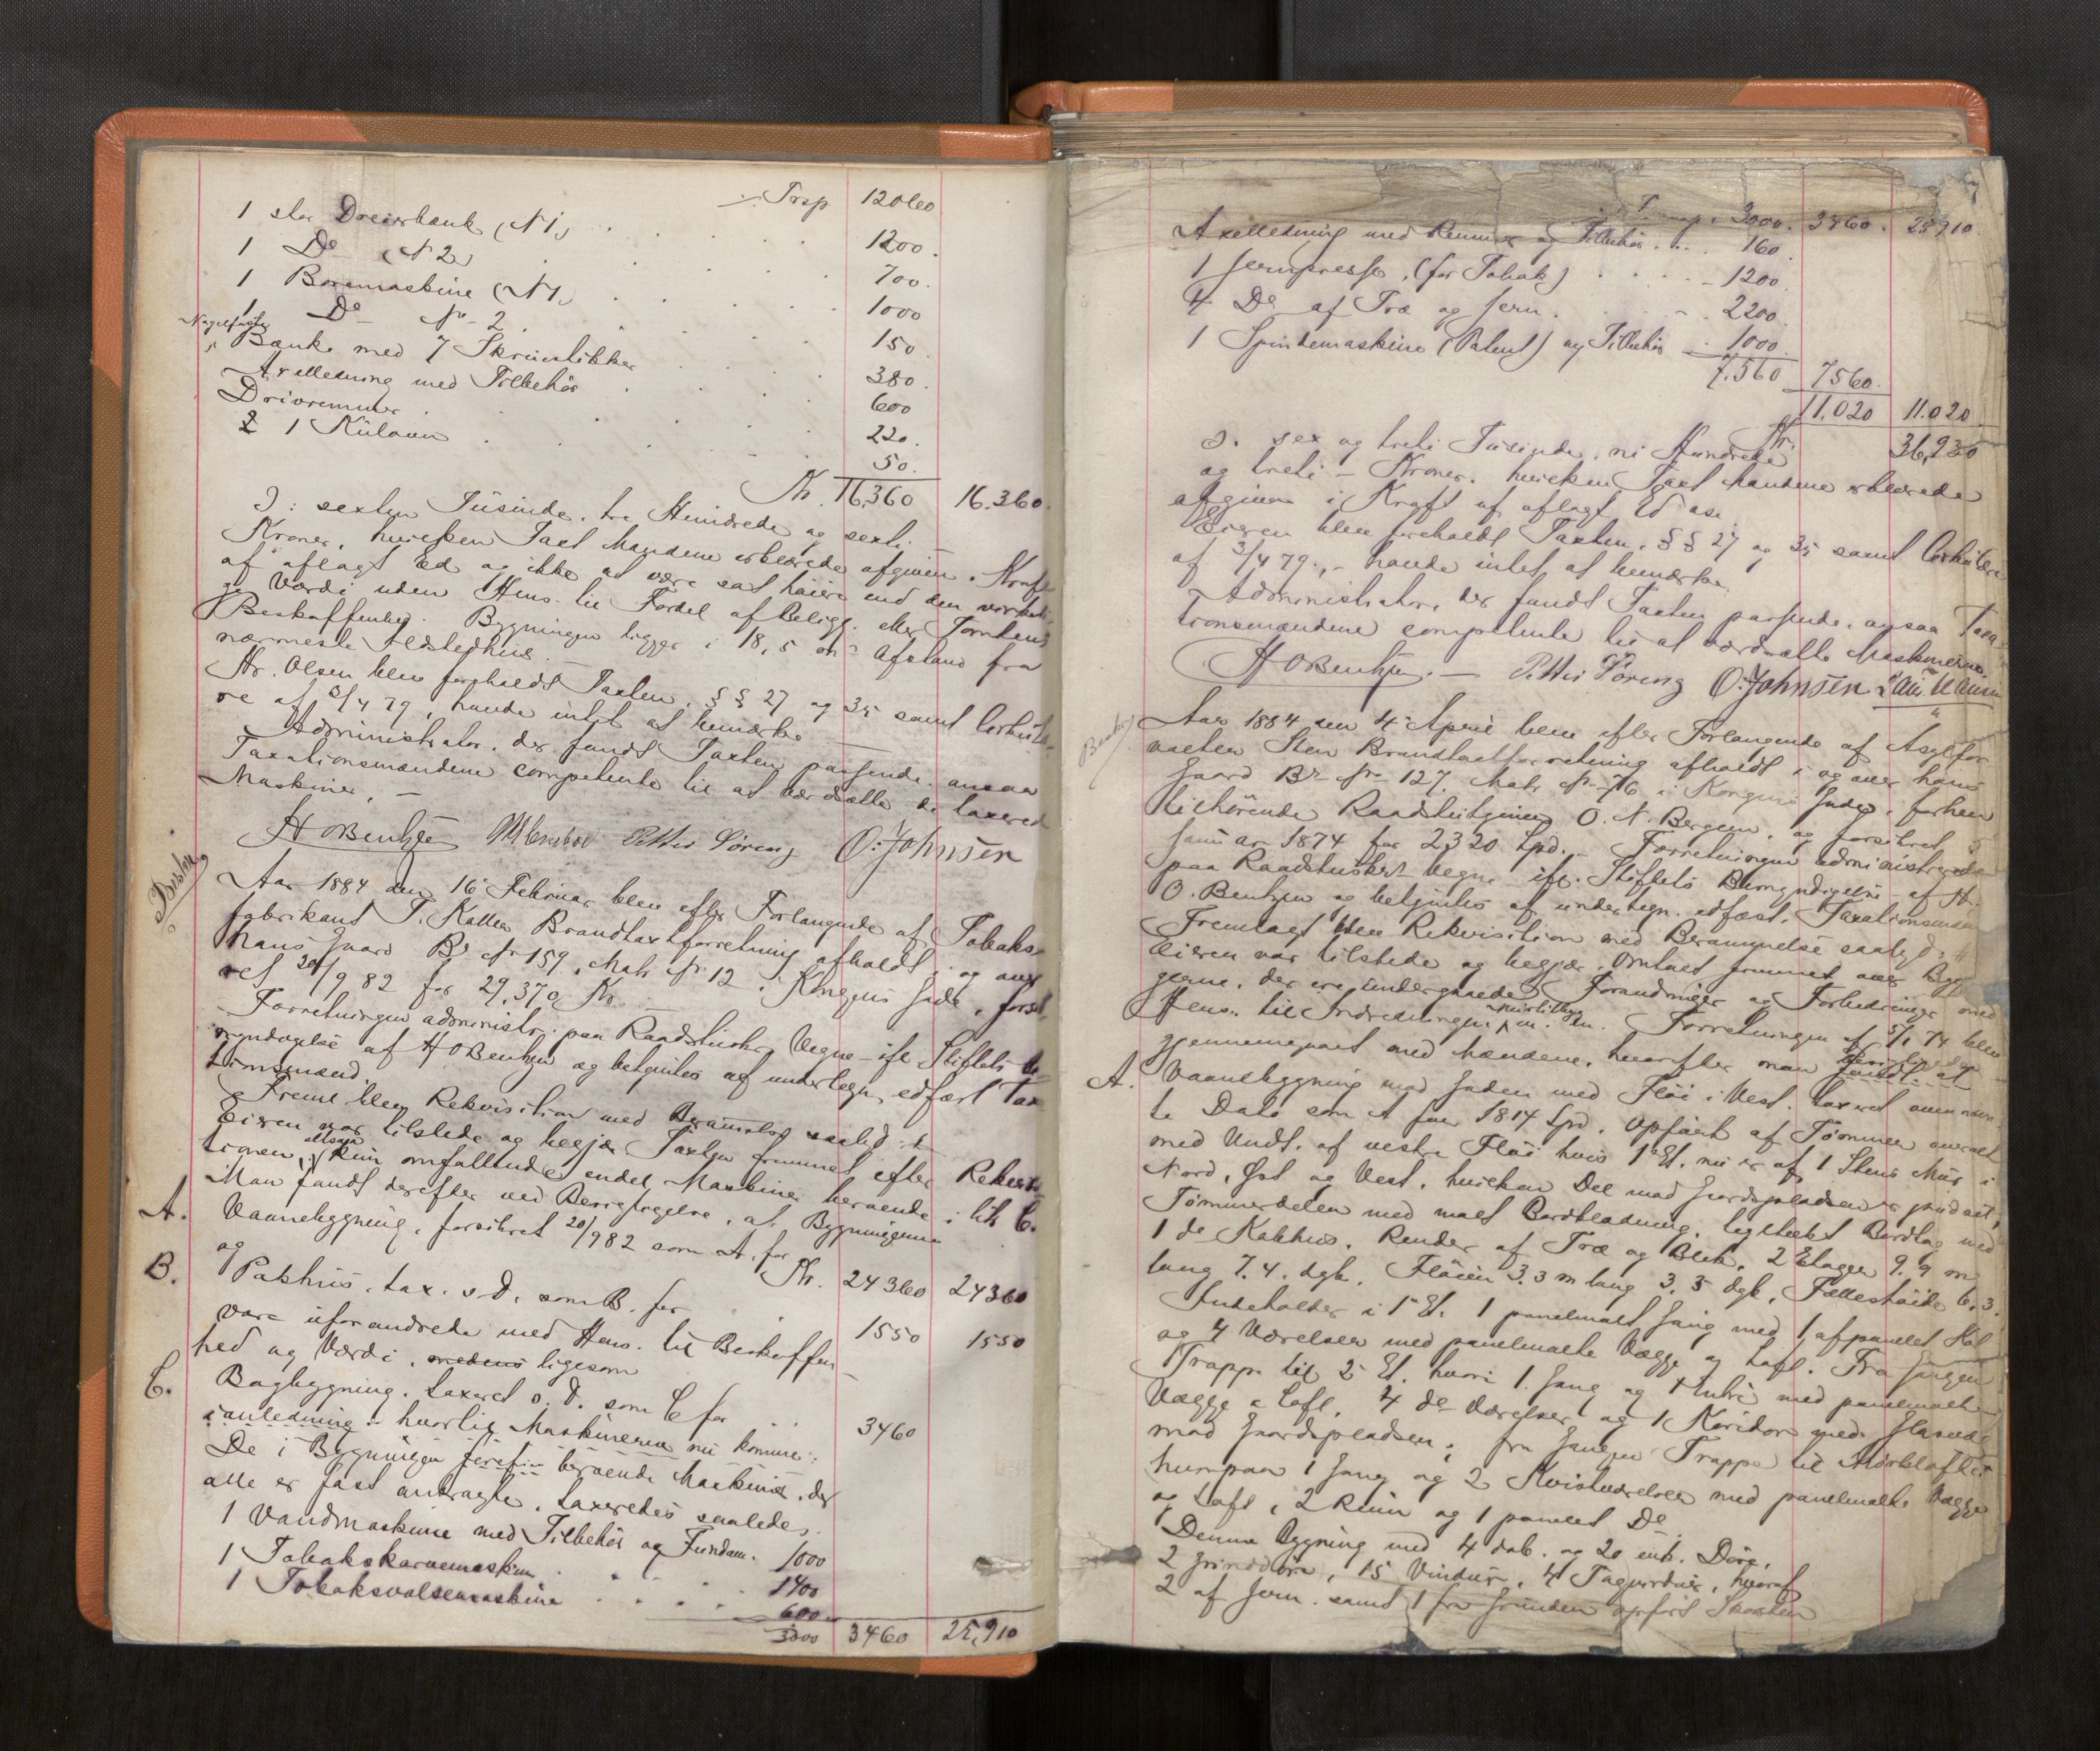 Trsp 12060
1 stor Dreierbænk (N 1) . . . 1200.
1 Do (N 2) . . . 700.
1 Boremaskine (N 1) . . . 1000
1 Do No 2 . . . 150
Nagelfaste
Bænke med 7 Skruestikker . . . 380.
Axelledning med Tilbehør . . . 600
Drivremmer . . . 220.
1 Külovn . . . 50.
Kr. 16,360 16.360.
ɔ: sexten Tusinde, tre Hundrede og sexti
Kroner, hvilken Taxt Mændene erklærede afgiven i Kraft
af aflagt Ed og ikke at være sat høiere end den virkeli-
ge Værdi uden Hens. til Fordel af Belig. eller Tomtens
Beskaffenhed. Bygningen ligger i 18,5 m Afstand fra
nærmeste Ildstedhus.
Hr. Olsen blev foreholdt Taxtlov. §§ 27 og 35 samt Cirkulæ-
re af 3/4 79, havde intet at bemærke
Administrator. der fandt Taxten passende ansaa
Taxationsmændene competente til at værdsætte de taxerede
Maskiner. —
H O Benthzen Petter Søreng O: Johnsen
Aar 1884 den 16 Februar blev efter Forlangende af Tobaks-
fabrikant T. Brandtaxtforretning afholdt i og over
hans Gaard Br No 159, Matr No 12 i Kongens Gade, forsik-
ret 20/9 82 for 29,370 Kr.
Forretningen administr. paa Raadstuens Vegne ifl. Stiftets Be-
myndigelse af H O Benthzen og betjentes af undertegn. edfæst Taxa
tionsmænd.
Freml. blev Rekvisition med Berammelse saalyd. #
Eieren var tilstede og begjær. Taxten fremmet efter Rekvisi-
tionen, altsaa kun omfattende endel Maskiner beroende i Litr C.
Man fandt derefter ved Besigtigelse, at Bygningerne
A. Vaanebygning, forsikret 20/9 82 som A. for Kr. 24360 24360
og
B. Pakhus, tax. s. D. som B. for . 1550 1550
vare uforandrede med Hens. til Beskaffen-
hed og Værdi, medens ligesom
C. Bagbygning, taxeret s. D. som C for . . 3460
ianledning hvorlig Maskinerne nu komme:
De i Bygningen beroende Maskiner, der
alle er fast anbragte, taxeredes saaledes.
1 Vandmaskine med Tilbehør og Fundam. 1000
1 Tobakskarvemaskin . . . 1400
1 Tobaksvalsemaskine . . . 600
3000 3460 25,910
Transp. 3000. 3460. 25910.
Axelledning med Remmer og Tilbehør . . . 160.
1 Jernpresse, (for Tobak) . . . 1200.
4 Do af Træ og Jern . . . 2200.
1 Spindemaskine (Patent) og Tilbehør . 1000.
7.560 7560.
11.020 11.020
Kr. 36,930
ɔ: sex og treti Tusinde, ni Hundrede
og treti — Kroner, hvilken Taxt Mændene erklærede
afgiven i Kraft af aflagt Ed osv.
Eieren blev foreholdt Taxtlov. §§ 27 og 35 samt Cirkulære
af 3/4 79, — havde intet at bemærke.
Administrator, der fandt Taxten passende, ansaa Taxa-
tionsmændene competente til at værdsætte Maskinerne.
H O Benthzen. — Petter Søreng O: Johnsen
Aar 1884 den 4 April blev efter Forlangende af Asylfor-
valter Sten Brandtaxtforretning afholdt i og over hans
Gaard Br No 127. Matr No 76 i Kongens Gade, forhen
tilhørende Raadstutjener O. N. Bergem, og forsikret 5
Januar 1874 for 2320 Spd. — Forretningen administreredes
paa Raadstuskr. Vegne ifl. Stiftets Bemyndigelse af H.
O. Benthzen og betjentes af undertegn. edfæst. Taxationsmænd
Fremlagt blev Rekvisition med Berammelse saalyd. #
Eieren var tilstede og begjær. Omtaxt fremmet over Byg-
gerne, der ere undergaaede Forandringer og Forbedringer med
Hens. til Indredningen m. m. Forretningen af 5/1 74 blev
gjennemgaaet med Mændene, hvorefter man fandt at
A. Vaanebygning mod Gaden med Fløi i Vest, taxeret ovennævn-
te Dato som A for 1814 Spd. Opført af Tømmer overalt
med Undt. af vestre Fløi hvis 1 Et. nu er af 1 Stens Mur i
Nord, Øst og Vest, hvilken Del mod Gardspladsen er pudset,
Tømmerdelen med malt Bordklædning, tegltækt Bordtag med
1 de Kakhus. Render af Træ og Blik, 2 Etager 9.9 m
lang 7.4. dyb. Fløien 3.3 m lang 3.5 dyb. Fælleshøide 6.3.
Indeholder i 1 Et. 1 panelmalt Gang med 1 afpanelet
og 4 Værelser med panelmalte Vægge og Loft. Fra Gangen
Trappe til 2 Et. hvori 1 Gang og 1 Entre med panelmalte
Vægge & Loft. 4 do Værelser og 1 Koridor med Glasvæg
mod Gaardspladsen; fra Gangen Trappe til Mørkloftet
hvorpaa 1 Gang og 2 Kvistværelser med panelmalte Vægge
og Loft, 2 Rum og 1 panelet Do
Denne Bygning med 4 dob. og 20 enk. Døre,
2 Grinddøre, 15 Vinduer, 4 Tagvinduer, hvoraf
2 af Jern. samt 1 fra Grunden opført Skorsten